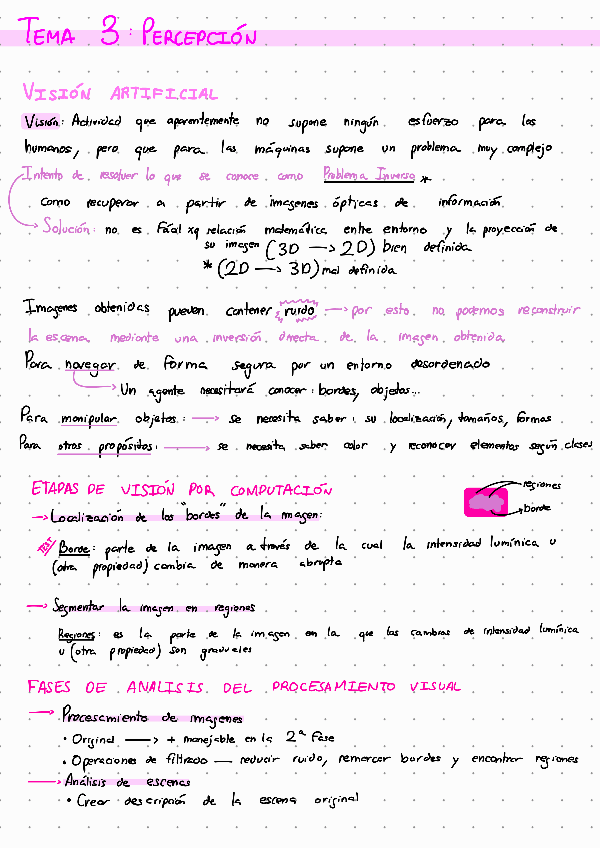 TEMA 3: PERCEPCIÓN
VISIÓN ARTIFICIAL
Visión: Actividad que aparentemente no supone ningún esfuerzo para los
humanos, pero que para las máquinas supone un problema muy complejo
Intento de resolver lo que se conoce como Problema Inverso *
como recuperar a partir de imagenes ópticas de información.
Solución: no es fácil xq relación matemática entre entorno y la proyección de
su imagen (3D → 2D) bien definida
* (2D → 3D) mal definida
Imagenes obtenidas pueden contener ruido → por esto no podemos reconstruir
la escena mediante una inversión directa de la imagen obtenida
Para navegar de forma segura por un entorno desordenado
→ Un agente necesitará conocer: bordes, objetos...
Para manipular objetos: → se necesita saber: su localización, tamaños, formas
Para otros propósitos: → se necesita saber color y reconocer elementos según clases
ETAPAS DE VISIÓN POR COMPUTACIÓN
regiones
borde
→ Localización de los "bordes" de la imagen:
TEST
Borde: parte de la imagen a través de la cual la intensidad lumínica u
(otra propiedad) cambia de manera abrupta
→ Segmentar la imagen en regiones
Regiones: es la parte de la imagen en la que los cambios de intensidad lumínica
u (otra propiedad) son graduales
FASES DE ANALISIS DEL PROCESAMIENTO VISUAL
→ Procesamiento de imagenes
• Original → + manejable en la 2ª fase
• Operaciones de filtrado — reducir ruido, remarcar bordes y encontrar regiones
→ Análisis de escenas
• Crear descripción de la escena original